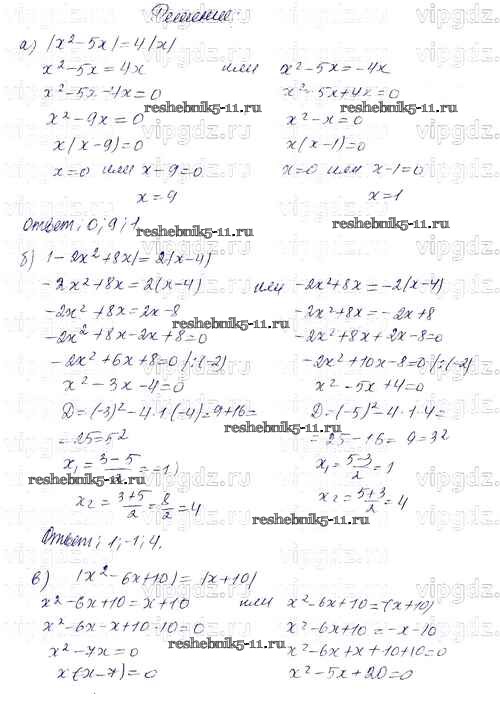 Решение:
а) |x²-5x|=4|x|
x²-5x=4x или x²-5x=-4x
x²-5x-4x=0 x²-5x+4x=0
x²-9x=0 x²-x=0
x(x-9)=0 x(x-1)=0
x=0 или x-9=0 x=0 или x-1=0
x=9 x=1
Ответ: 0; 9; 1
б) |-2x²+8x|=2(x-4)
-2x²+8x=2(x-4) или -2x²+8x=-2(x-4)
-2x²+8x=2x-8 -2x²+8x=-2x+8
-2x²+8x-2x+8=0 -2x²+8x+2x-8=0
-2x²+6x+8=0 /:(-2) -2x²+10x-8=0 /:(-2)
x²-3x-4=0 x²-5x+4=0
D=(-3)²-4·1·(-4)=9+16= D=(-5)²-4·1·4=
=25=5² =25-16=9=3²
x₁=(3-5)/2=-1; x₁=(5-3)/2=1
x₂=(3+5)/2=8/2=4 x₂=(5+3)/2=4
Ответ: 1; -1; 4.
в) |x²-6x+10|=|x+10|
x²-6x+10=x+10 или x²-6x+10=-(x+10)
x²-6x-x+10-10=0 x²-6x+10=-x-10
x²-7x=0 x²-6x+x+10+10=0
x(x-7)=0 x²-5x+20=0
vipgdz.ru
reshebnik5-11.ru